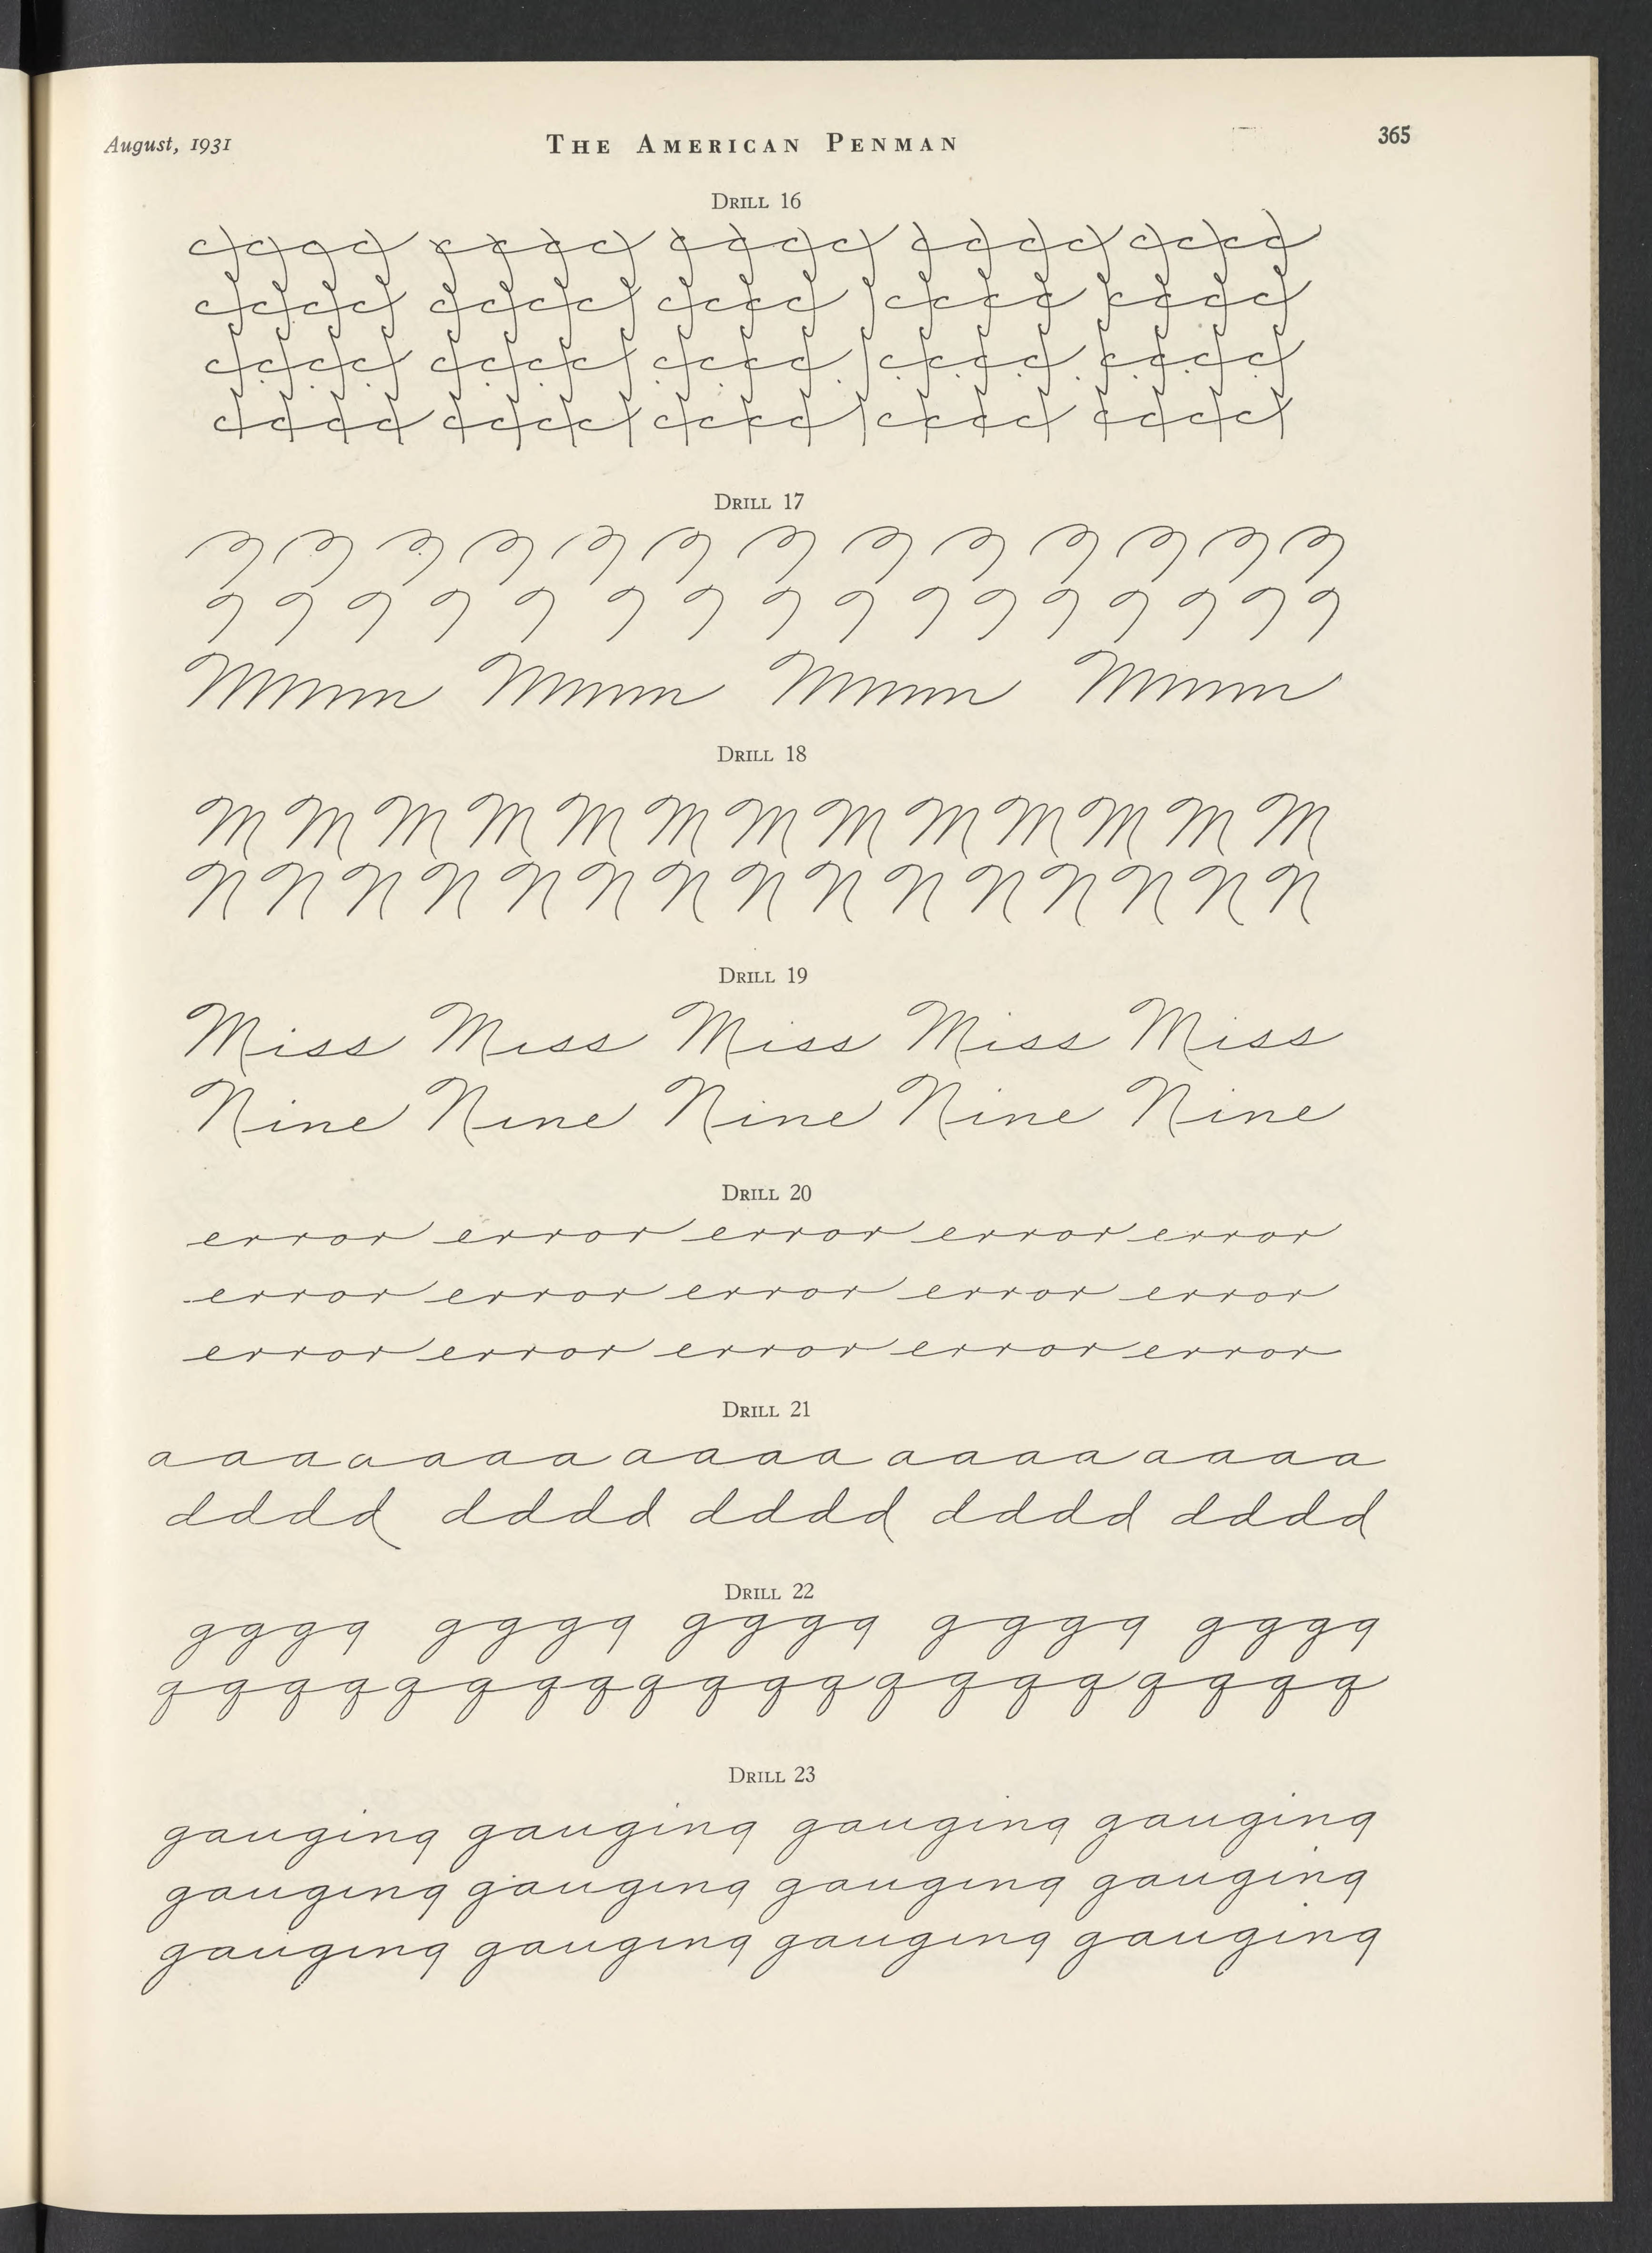 August, 1931 THE AMERICAN PENMAN 365
DRILL 16
cccc cccc cccc cccc cccc
cccc cccc cccc cccc cccc
cccc cccc cccc cccc cccc
cccc cccc cccc cccc cccc
DRILL 17
Mmmm Mmmm Mmmm Mmmm
DRILL 18
M M M M M M M M M M M M M
N N N N N N N N N N N N N N N
DRILL 19
Miss Miss Miss Miss Miss
Nine Nine Nine Nine Nine
DRILL 20
error error error error error
error error error error error
error error error error error
DRILL 21
aaaa aaaa aaaa aaaa aaaa
dddd dddd dddd dddd dddd
DRILL 22
gggg gggg gggg gggg gggg
gggg gggg gggg gggg gggg
DRILL 23
gauging gauging gauging gauging
gauging gauging gauging gauging
gauging gauging gauging gauging